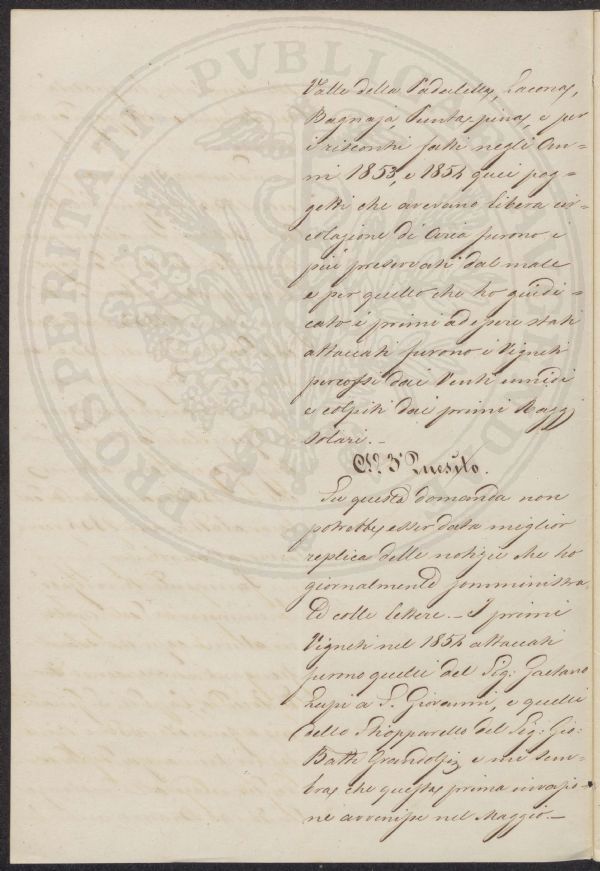 Valle della Padulella, Lacona,
Bagnaja, Punta pina, e per
i riscontri fatti negli An=
ni 1853, e 1854 quei pog=
getti che avevano libera cir=
colazione di Aria furono i
più preservati dal male
e per quello che ho giudi=
cato i primi ad essere stati
attaccati furono i Vigneti
percossi dai Venti umidi
e colpiti dai primi Raggi
solari.–
Al 3° Quesito.
Su questa domanda non
potrebbe esser data miglior
replica delle notizie che ho
giornalmente somministra
te colle lettere.– I primi
Vigneti nel 1854 attaccati
furono quelli del Sig: Gaetano
Lupi a S. Giovanni, e quelli
dello Schopparello del Sig: Gio:
Batt: Grandolfi, e mi sem=
bra che questa prima invasio=
ne avvenisse nel Maggio.–
PROSPERITATI PVBLICAE